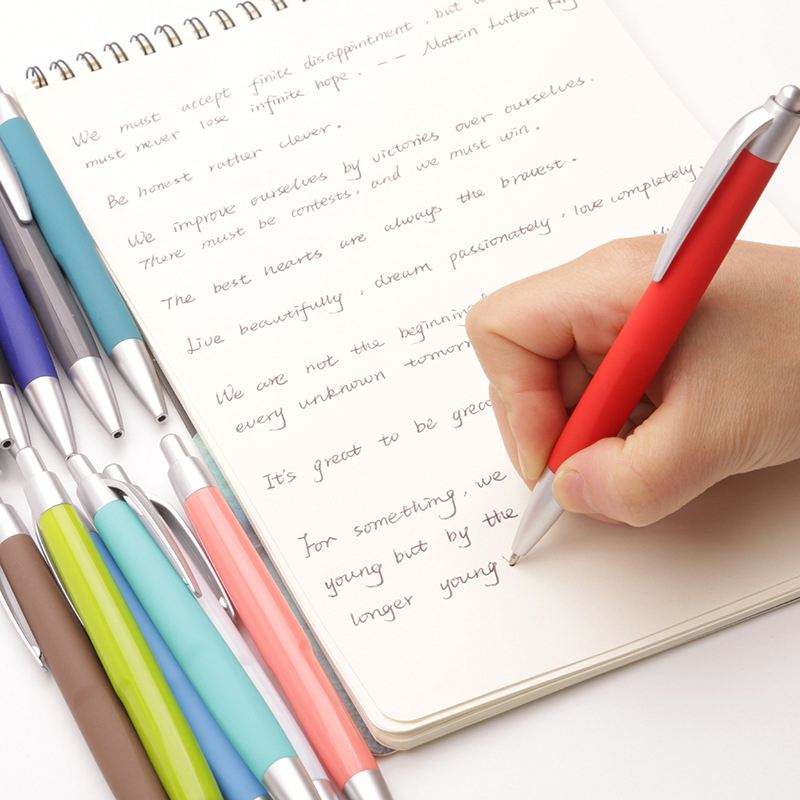 We must accept finite disappointment, but
must never lose infinite hope. -- Mattin Luther King
Be honest rather clever.
We improve ourselves by victories over ourselves.
There must be contests, and we must win.
The best hearts are always the bravest.
Live beautifully, dream passionately, love completely.
We are not the beginning
every unknown
It's great to be
For something, we
young but by the
longer young